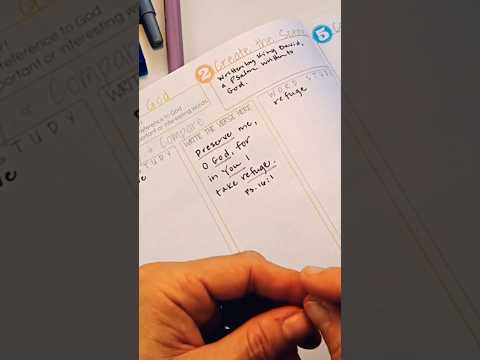 God
reference to God
portant or interesting words
Compare
TUDY
2 Create the Scene
Written by King David,
a Psalm written to
God.
WRITE THE VERSE HERE
Preserve me,
O God, for
in You I
take refuge.
Ps. 16:1
WORD STUDY
refuge
5
reference to God
portant or interesting
TUDY